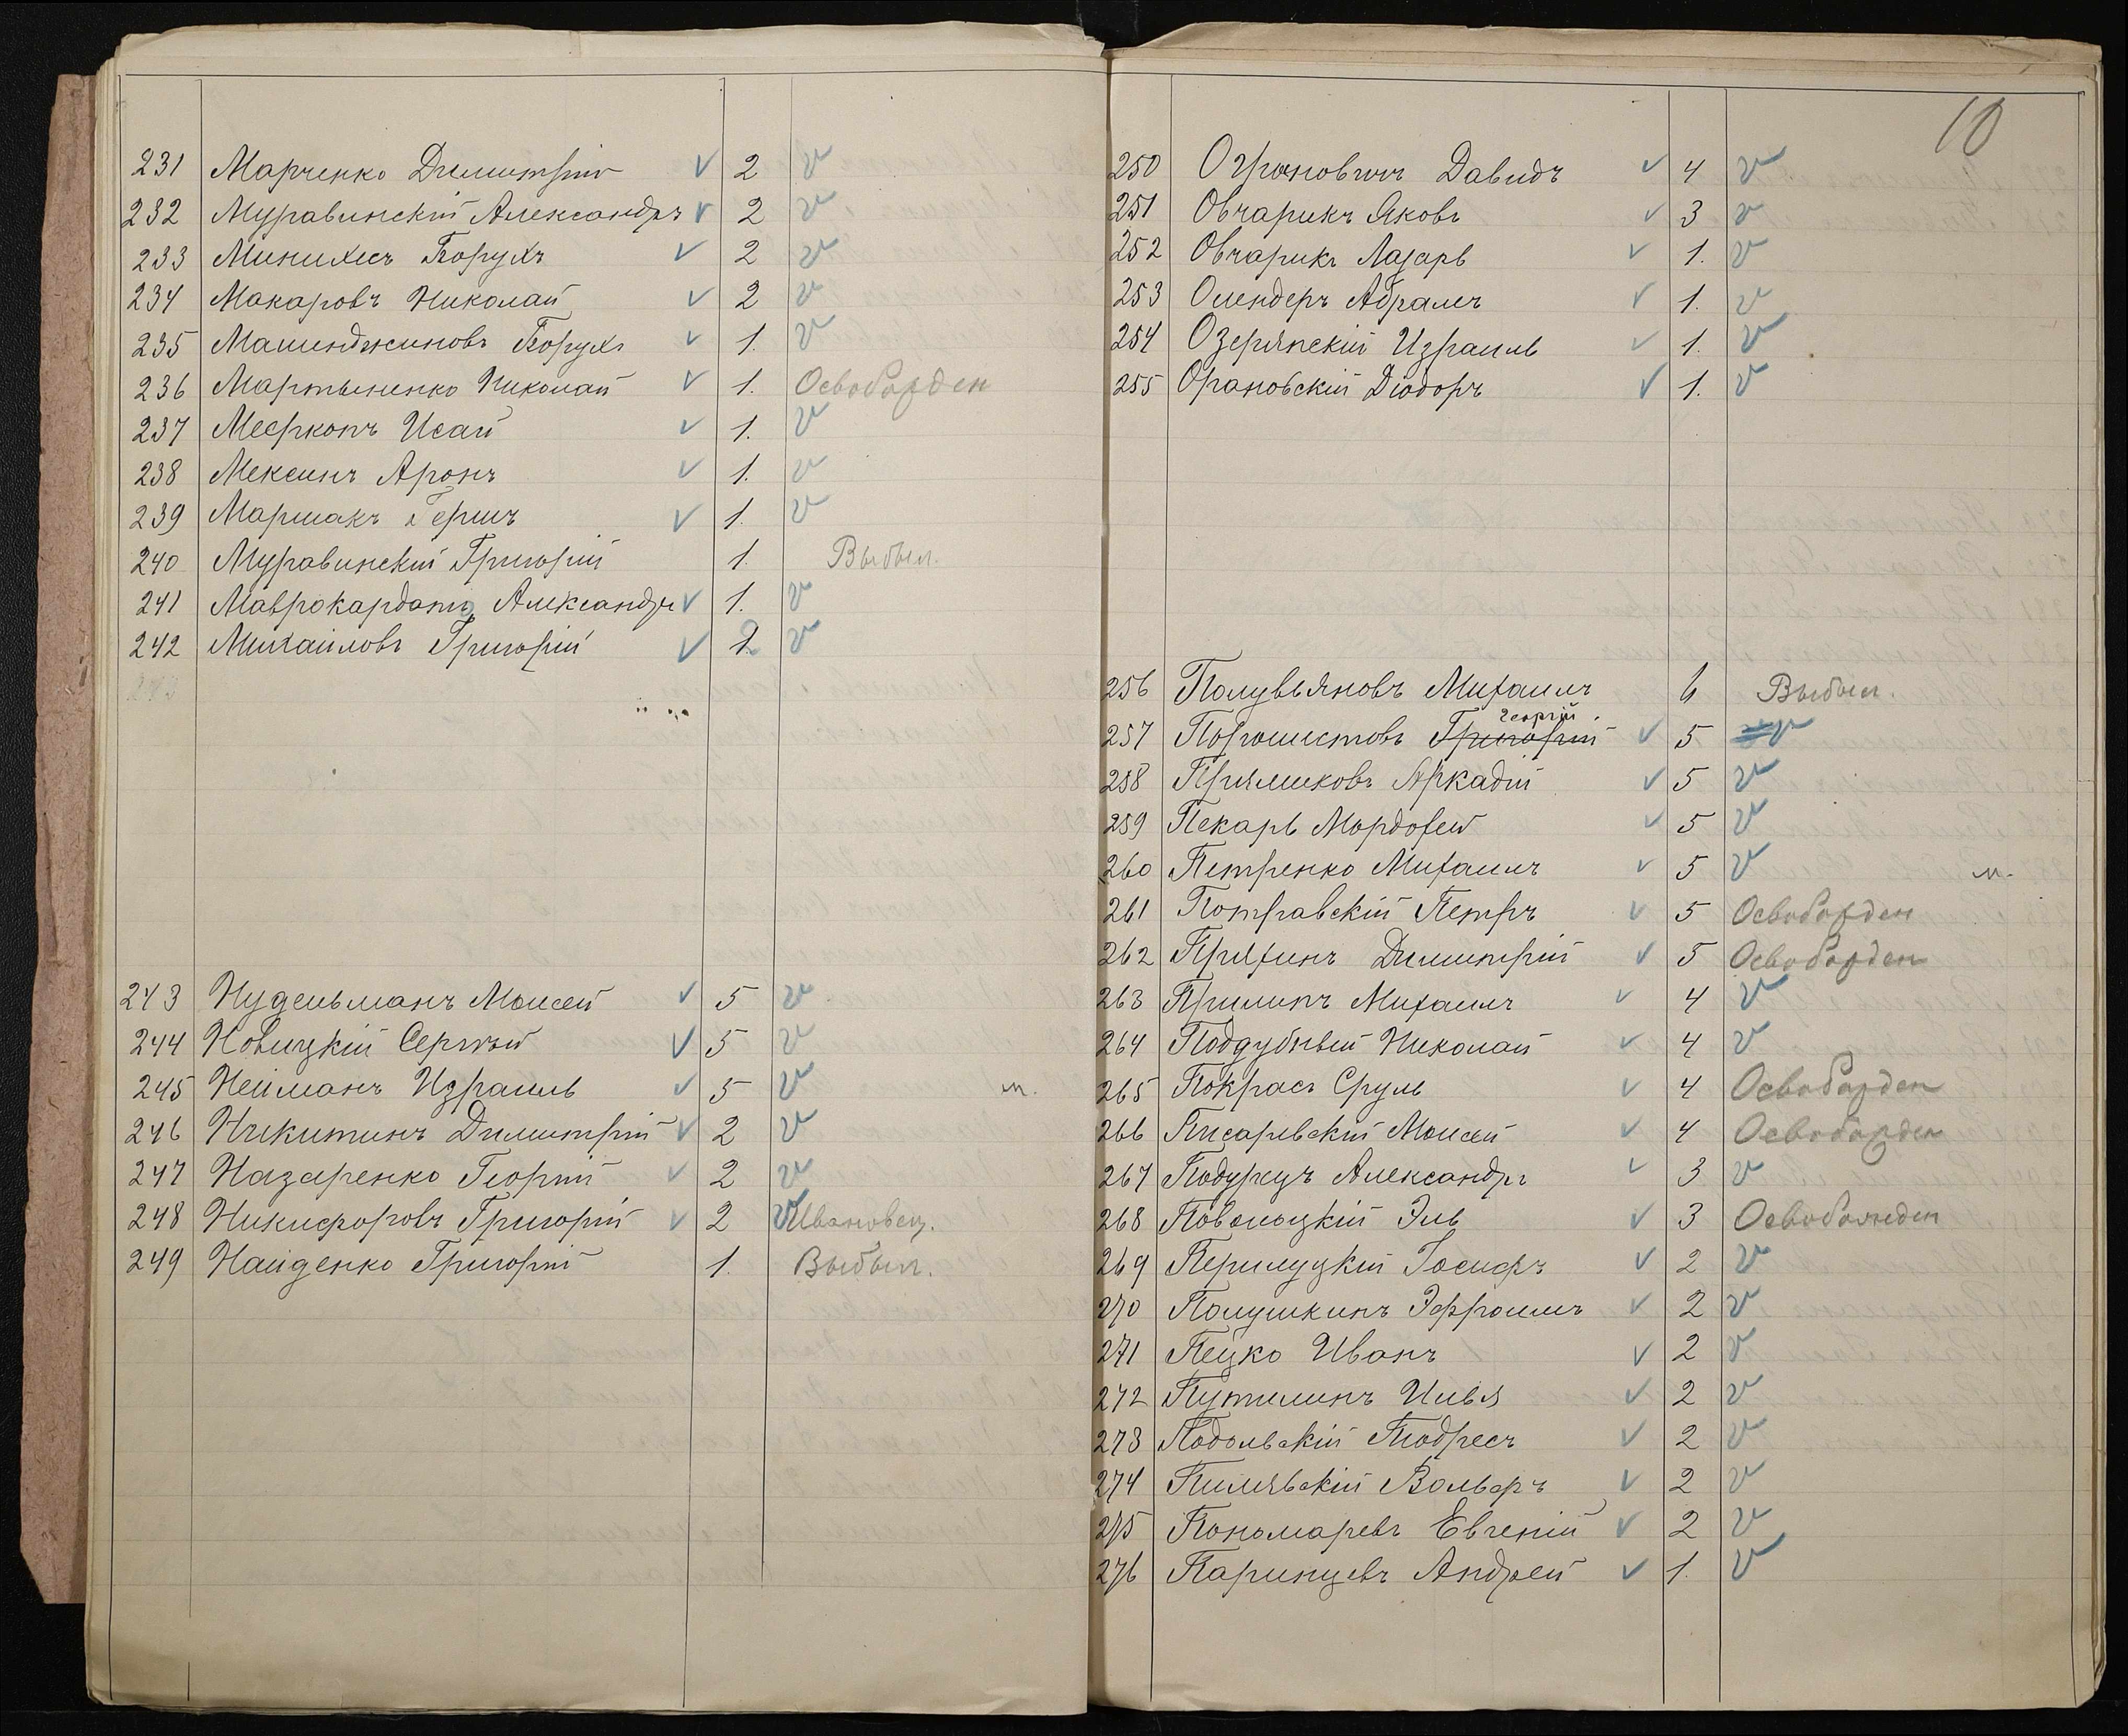 231 Марченко Димитрій √ 2 v
232 Муравинскій Александръ √ 2 v
233 Минихесъ Борухъ √ 2 v
234 Макаровъ Николай √ 2 v
235 Машинджиновъ Борухъ √ 1. v
236 Мартыненко Николай √ 1. Освобожден
237 Месркопъ Исай √ 1. v
238 Мексинъ Аронъ √ 1. v
239 Маршакъ Гершъ √ 1. v
240 Муравинскій Григорій 1. Выбыл.
241 Маврокардато Александръ √ 1. v
242 Михайловъ Григорій √ 2 v
243 Нудельманъ Моисей √ 5 v
244 Новицкій Сергѣй √ 5 v
245 Нейманъ Израиль √ 5 v м.
246 Никитинъ Димитрій √ 2 v
247 Назаренко Георгій √ 2 v
248 Никифоровъ Григорій √ 2 v Ивановец.
249 Найденко Григорій 1. Выбыл.
10
250 Ограновичъ Давидъ √ 4 v
251 Овчарикъ Яковъ √ 3 v
252 Овчарикъ Лазарь √ 1. v
253 Олендеръ Абрамъ √ 1. v
254 Озерянскій Израиль √ 1. v
255 Орановскій Діодоръ √ 1. v
256 Полувьяновъ Михаилъ 6 Выбыл.
Георгій
257 Порошистовъ Григорій √ 5 v
258 Прямиковъ Аркадій √ 5 v
259 Пекарь Мордохей √ 5 v
260 Петренко Михаилъ √ 5 v м.
261 Потравскій Петръ √ 5 Освобожден
262 Пряхинъ Димитрій √ 5 Освобожден
263 Пришипъ Михаилъ √ 4 v
264 Поддубный Николай √ 4 v
265 Покрасъ Сруль √ 4 Освобожден
266 Писаревскій Моисей √ 4 Освобожден
267 Подурецъ Александръ √ 3 v
268 Поволоцкій Эль √ 3 Освобожден
269 Перилуцкій Іосифъ √ 2 v
270 Полушкинъ Эффраимъ √ 2 v
271 Пецко Иванъ √ 2 v
272 Путилинъ Илья √ 2 v
273 Подольскій Тодресъ √ 2 v
274 Пилявскій Вольфъ √ 2 v
275 Пономаревъ Евгеній √ 2 v
276 Паринцевъ Андрей √ 1. v